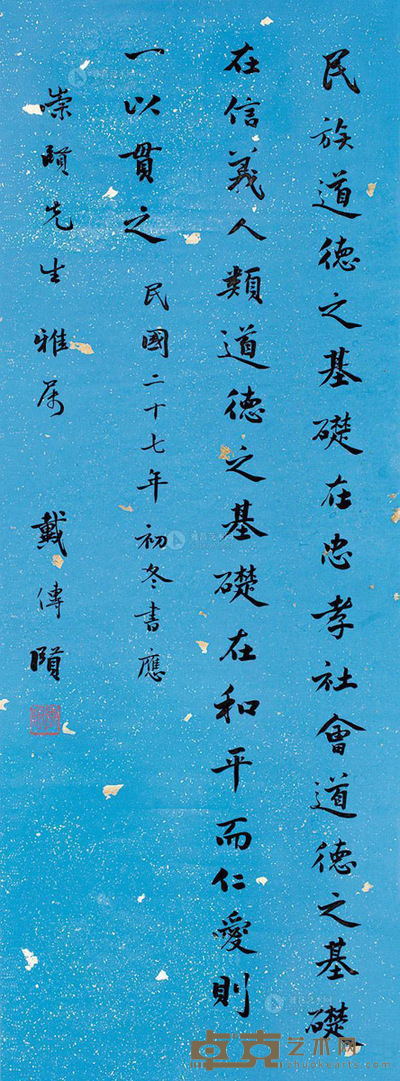 民族道德之基礎在忠孝社會道德之基礎
在信義人類道德之基礎在和平而仁愛則
一以貫之 民國二十七年初冬書應
崇頤先生雅屬 戴傳賢
卓克艺术网